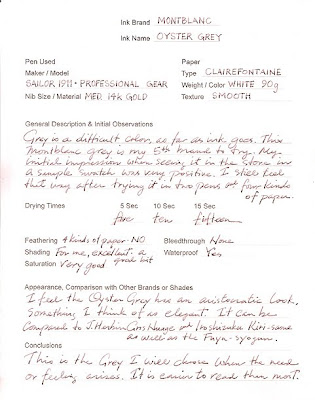 Ink Brand MONTBLANC
Ink Name OYSTER GREY
Pen Used Paper
Maker / Model Type CLAIREFONTAINE
SAILOR 1911 · PROFESSIONAL GEAR Weight / Color WHITE 90g
Nib Size / Material MED. 14K GOLD Texture SMOOTH
General Description & Initial Observations
Grey is a difficult color, as far as ink goes. This
Montblanc grey is my 5th brand to try. My
initial impression when seeing it in the store in
a sample swatch was very positive. I still feel
that way after trying it in two pens and four kinds
of paper.
Drying Times 5 Sec 10 Sec 15 Sec
five ten fifteen
Feathering 4 kinds of paper - NO Bleedthrough None
Shading For me, excellent - a great bit Waterproof Yes
Saturation Very good
Appearance, Comparison with Other Brands or Shades
I feel the Oyster Grey has an aristocratic look,
Something I think of as elegant. It can be
Compared to J. Herbin Gris Nuage and Iroshizuku Kiri-same
as well as the Fuyu-syogun.
Conclusions
This is the Grey I will choose when the need
or feeling arises. It is easier to read than most.